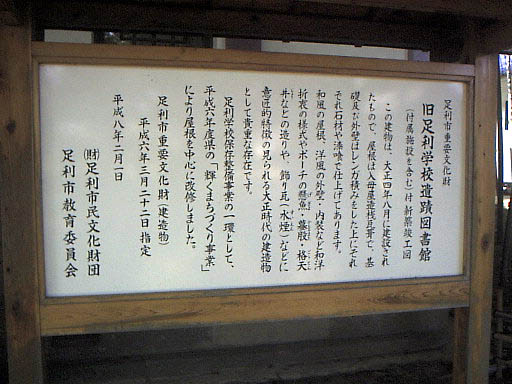 足利市重要文化財
旧足利学校遺蹟図書館
(付属施設を含む)付 新築竣工図
この建物は、大正四年八月に建設され
たもので、屋根は入母屋造桟瓦葺で、基
礎及び外壁はレンガ積みをした上にそれ
ぞれ石材や漆喰で仕上げてあります。
和風の屋根、洋風の外壁・内装など和洋
折衷の様式やポーチの懸魚・蟇股・格天
井などの造りや、飾り瓦(水煙)などに
意匠的特徴の見られる大正時代の建造物
として貴重な存在です。
足利学校保存整備事業の一環として、
平成六年度県の「輝くまちづくり事業」
により屋根を中心に改修しました。
足利市重要文化財(建造物)
平成六年三月二十二日指定
平成八年二月一日
(財)足利市民文化財団
足利市教育委員会